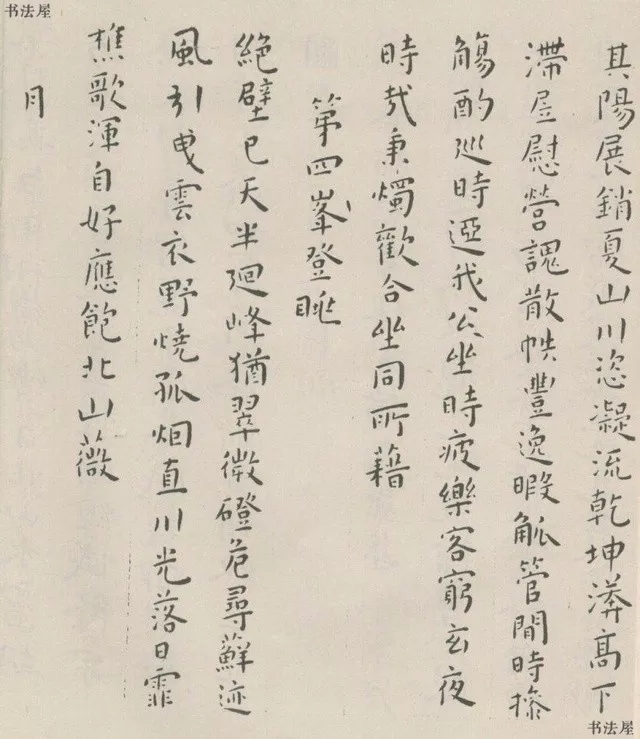 书法屋
其陽展銷夏山川恣凝流乾坤漭高下
滯屋慰營謢散帙豐逸暇觚管間時操
觴酌巡時迓我公坐時疲樂客窮玄夜
時或秉燭歡合坐同所藉
第四峯登眺
絕壁已天半迴峰猶翠微磴危尋蘚迹
風引曳雲衣野燒孤烟直川光落日霏
樵歌渾自好應飽北山薇
月
书法屋